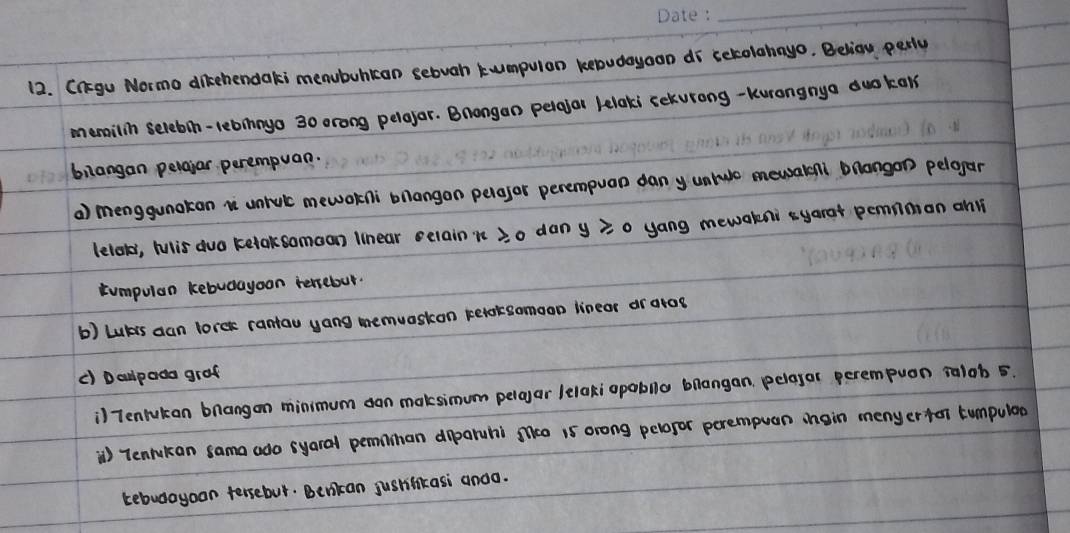 Date:
12. Cikgu Normo dikehendaki menubuhkan sebuah kumpulan kebudayaan di sekolahnya. Beliau perlu
memilih selebih-lebihnya 30 orang pelajar. Bilangan pelajar lelaki sekurang-kurangnya dua kali
bilangan pelajar perempuan.
a) menggunakan x untuk mewakili bilangan pelajar perempuan dan y untuk mewakili bilangan pelajar
lelaki, tulis dua ketaksamaan linear selain x ≥ 0 dan y ≥ 0 yang mewakili syarat pemilihan ahli
kumpulan kebudayaan tersebut.
b) Lukis dan lorek rantau yang memuaskan ketaksamaan linear di atas
c) Daripada graf
i) Tentukan bilangan minimum dan maksimum pelajar lelaki apabila bilangan pelajar perempuan ialah 5.
ii) Tentukan sama ada syarat pemilihan dipatuhi jika 15 orang pelajar perempuan ingin menyertai kumpulan
kebudayaan tersebut. Berikan justifikasi anda.